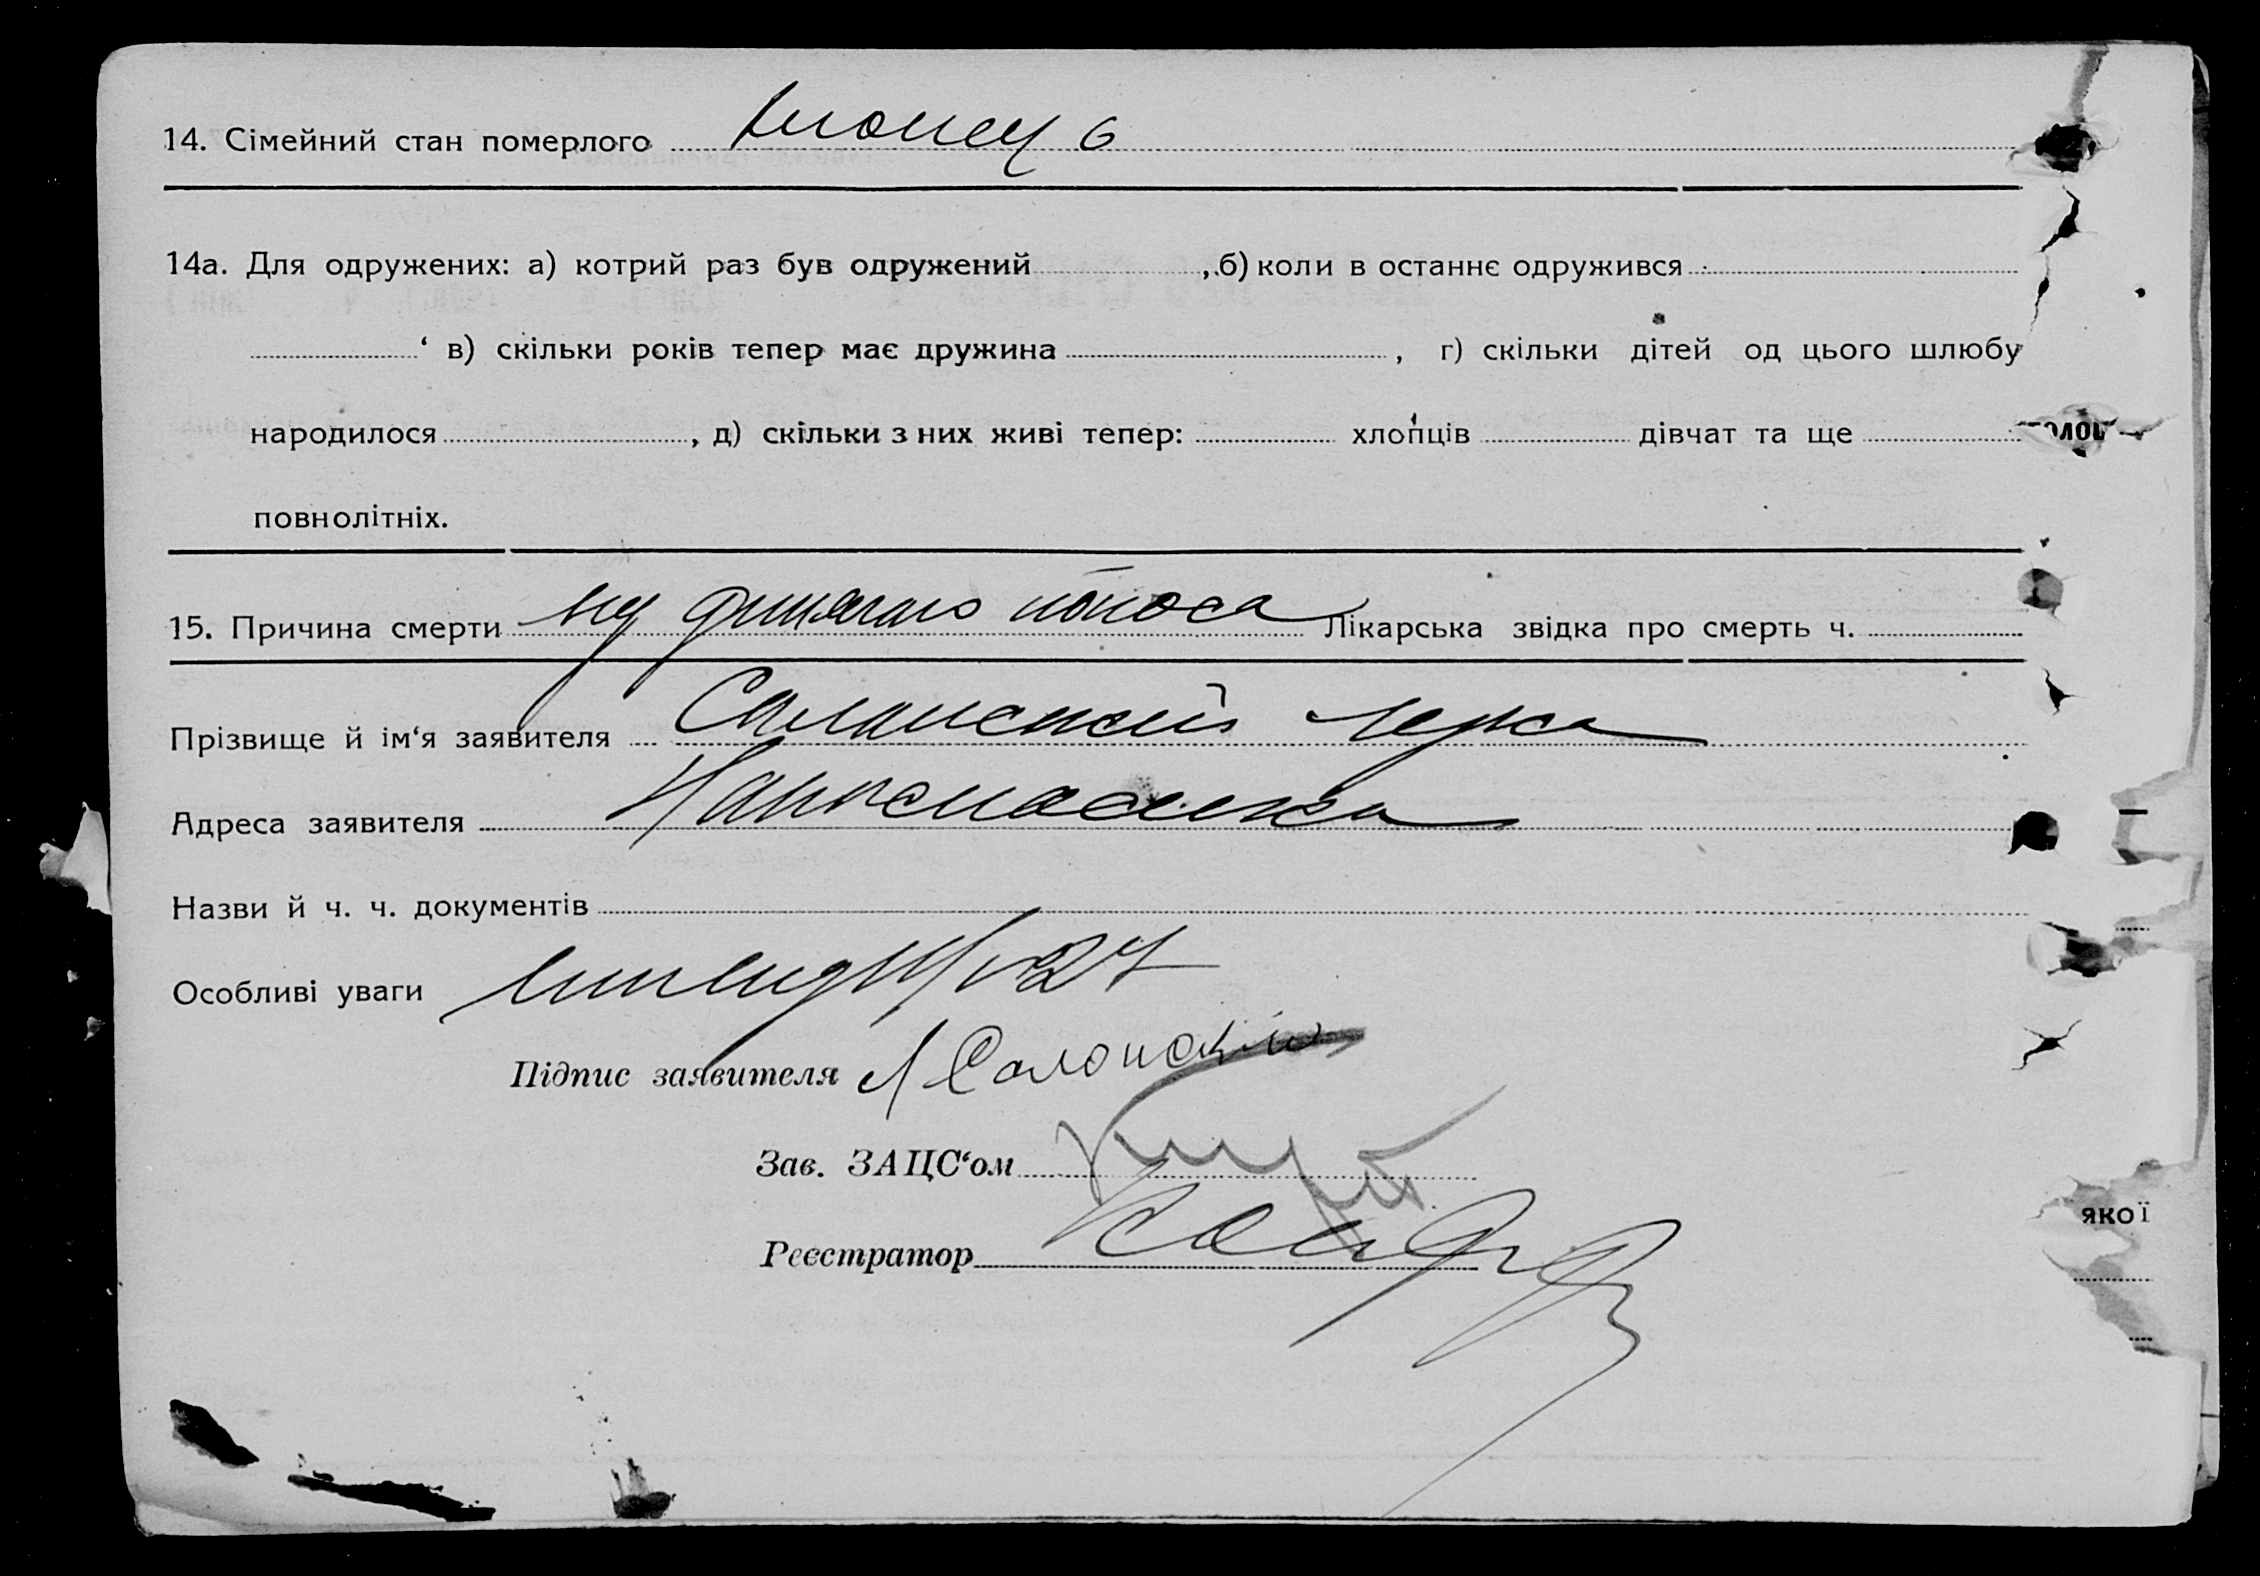 14. Сімейний стан померлого хлопец 6
14а. Для одружених: а) котрий раз був одружений , б) коли в останнє одружився
‘ в) скільки років тепер має дружина , г) скільки дітей од цього шлюбу
народилося , д) скільки з них живі тепер: хлопців дівчат та ще
повнолітніх.
15. Причина смерти поноса Лікарська звідка про смерть ч.
Прізвище й ім‘я заявителя Солонский
Адреса заявителя
Назви й ч. ч. документів
Особливі уваги
Підпис заявителя Л Солонский
Зав. ЗАЦС‘ом
Реєстратор
якої